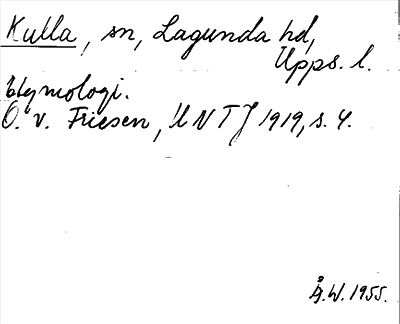 Kulla, sn, Lagunda hd,
Upps. l.
Etymologi.
O. v. Friesen, UNTJ 1919, s. 4.
Å.W. 1955.